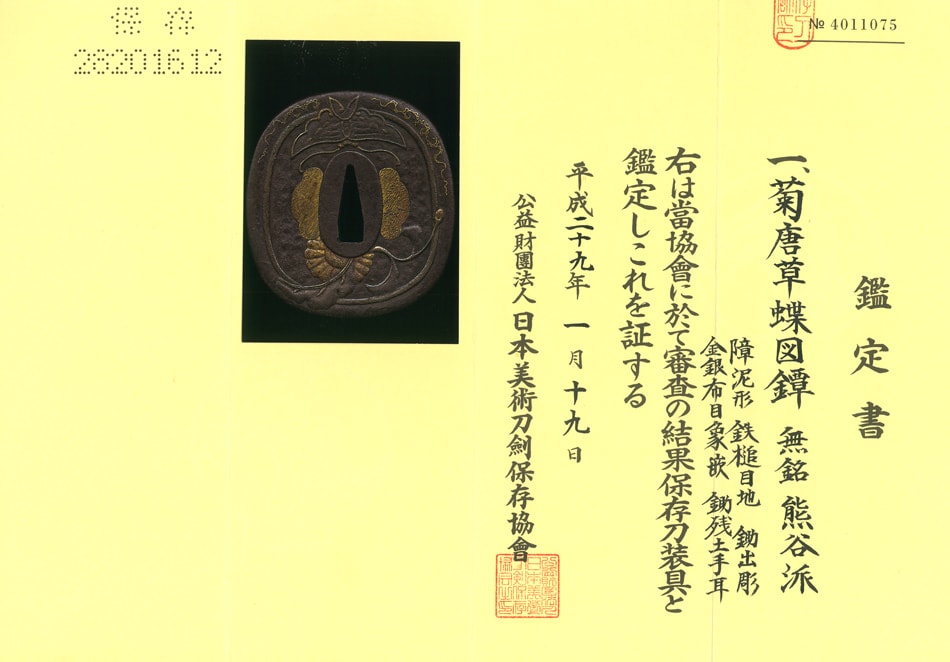 № 4011075
鑑定書
一、菊唐草蝶図鐔 無銘 熊谷派
障泥形 鉄槌目地 鋤出彫
金銀布目象嵌 鋤残土手耳
右は當協會に於て審査の結果保存刀装具と
鑑定しこれを証する
平成二十九年 一月十九日
公益財團法人 日本美術刀劍保存協會
保存
28201612